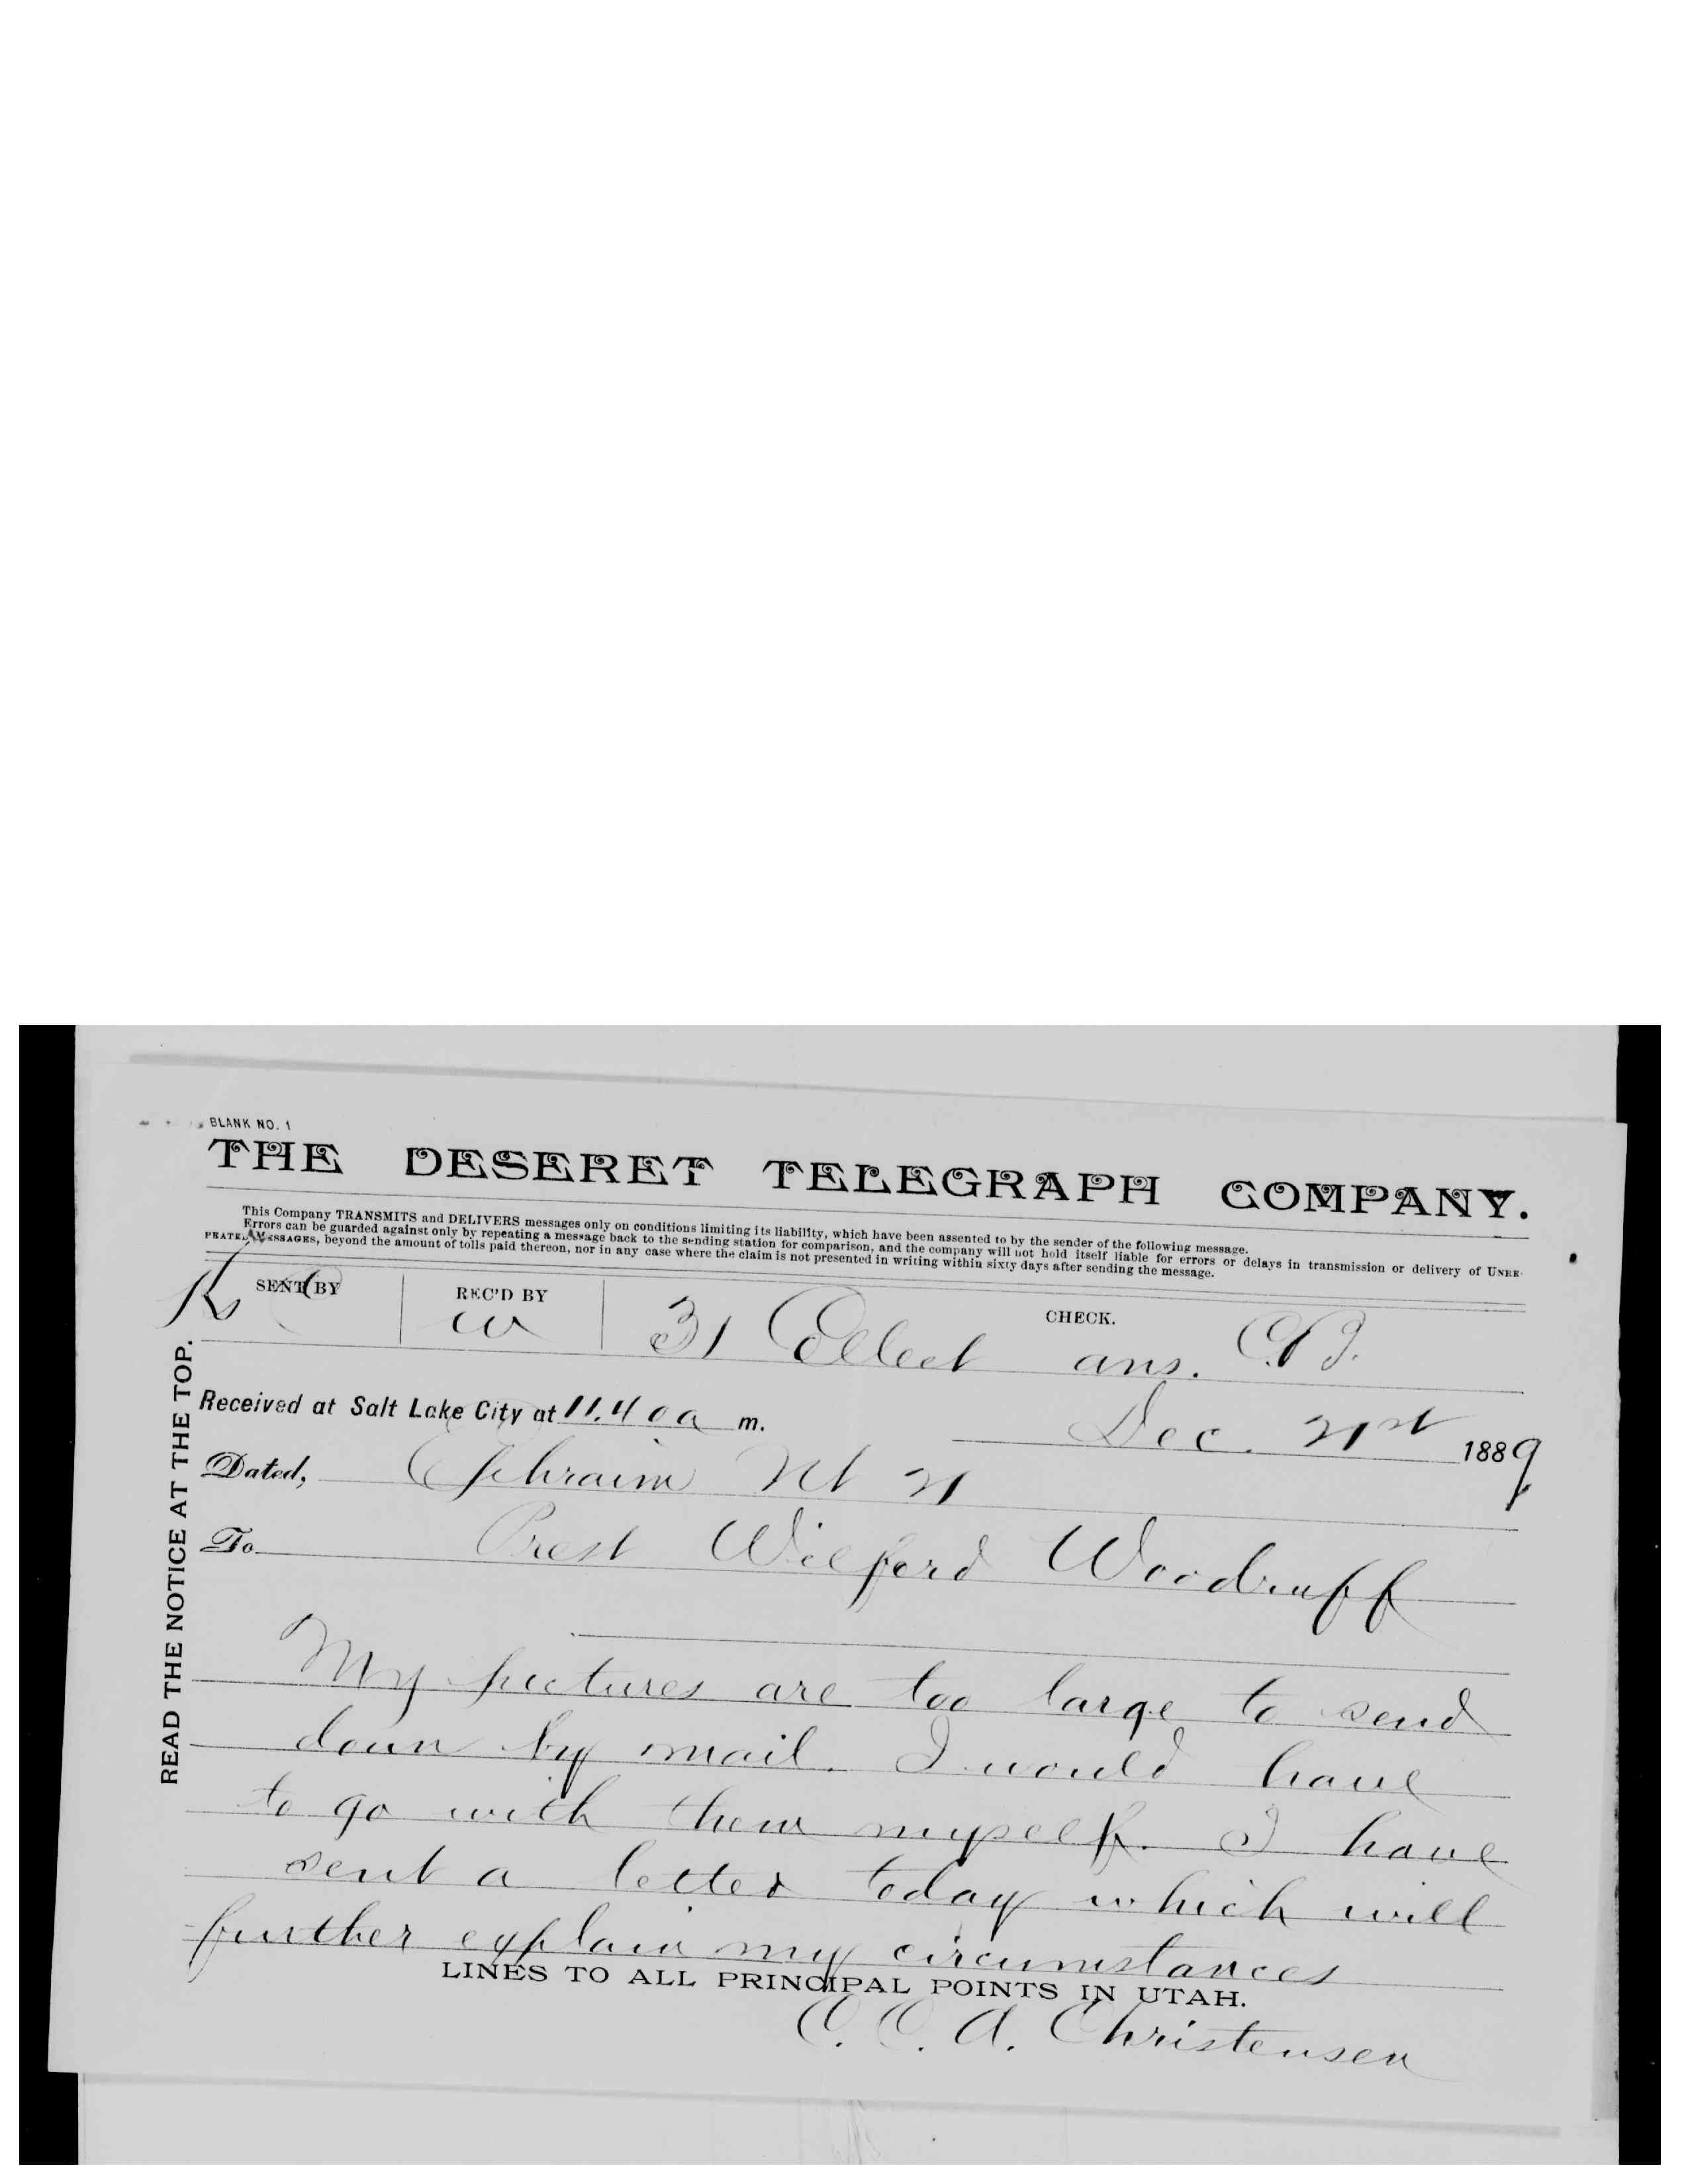 BLANK NO. 1
THE DESERET TELEGRAPH COMPANY.
This Company TRANSMITS and DELIVERS messages only on conditions limiting its liability, which have been assented to by the sender of the following message.
Errors can be guarded against only by repeating a message back to the sending station for comparison, and the company will not hold itself liable for errors or delays in transmission or delivery of UNRE-
PEATED MESSAGES, beyond the amount of tolls paid thereon, nor in any case where the claim is not presented in writing within sixty days after sending the message.
READ THE NOTICE AT THE TOP.
SENT BY REC'D BY CHECK.
31 Collect ans.
Received at Salt Lake City at 11.40 a m.
Dec. 21st 1889
Dated, Ephraim Ut 21
To Prest Wilford Woodruff
My pictures are too large to send
down by mail. I would have
to go with them myself. I have
sent a letter today which will
further explain my circumstances
LINES TO ALL PRINCIPAL POINTS IN UTAH.
C. C. A. Christensen